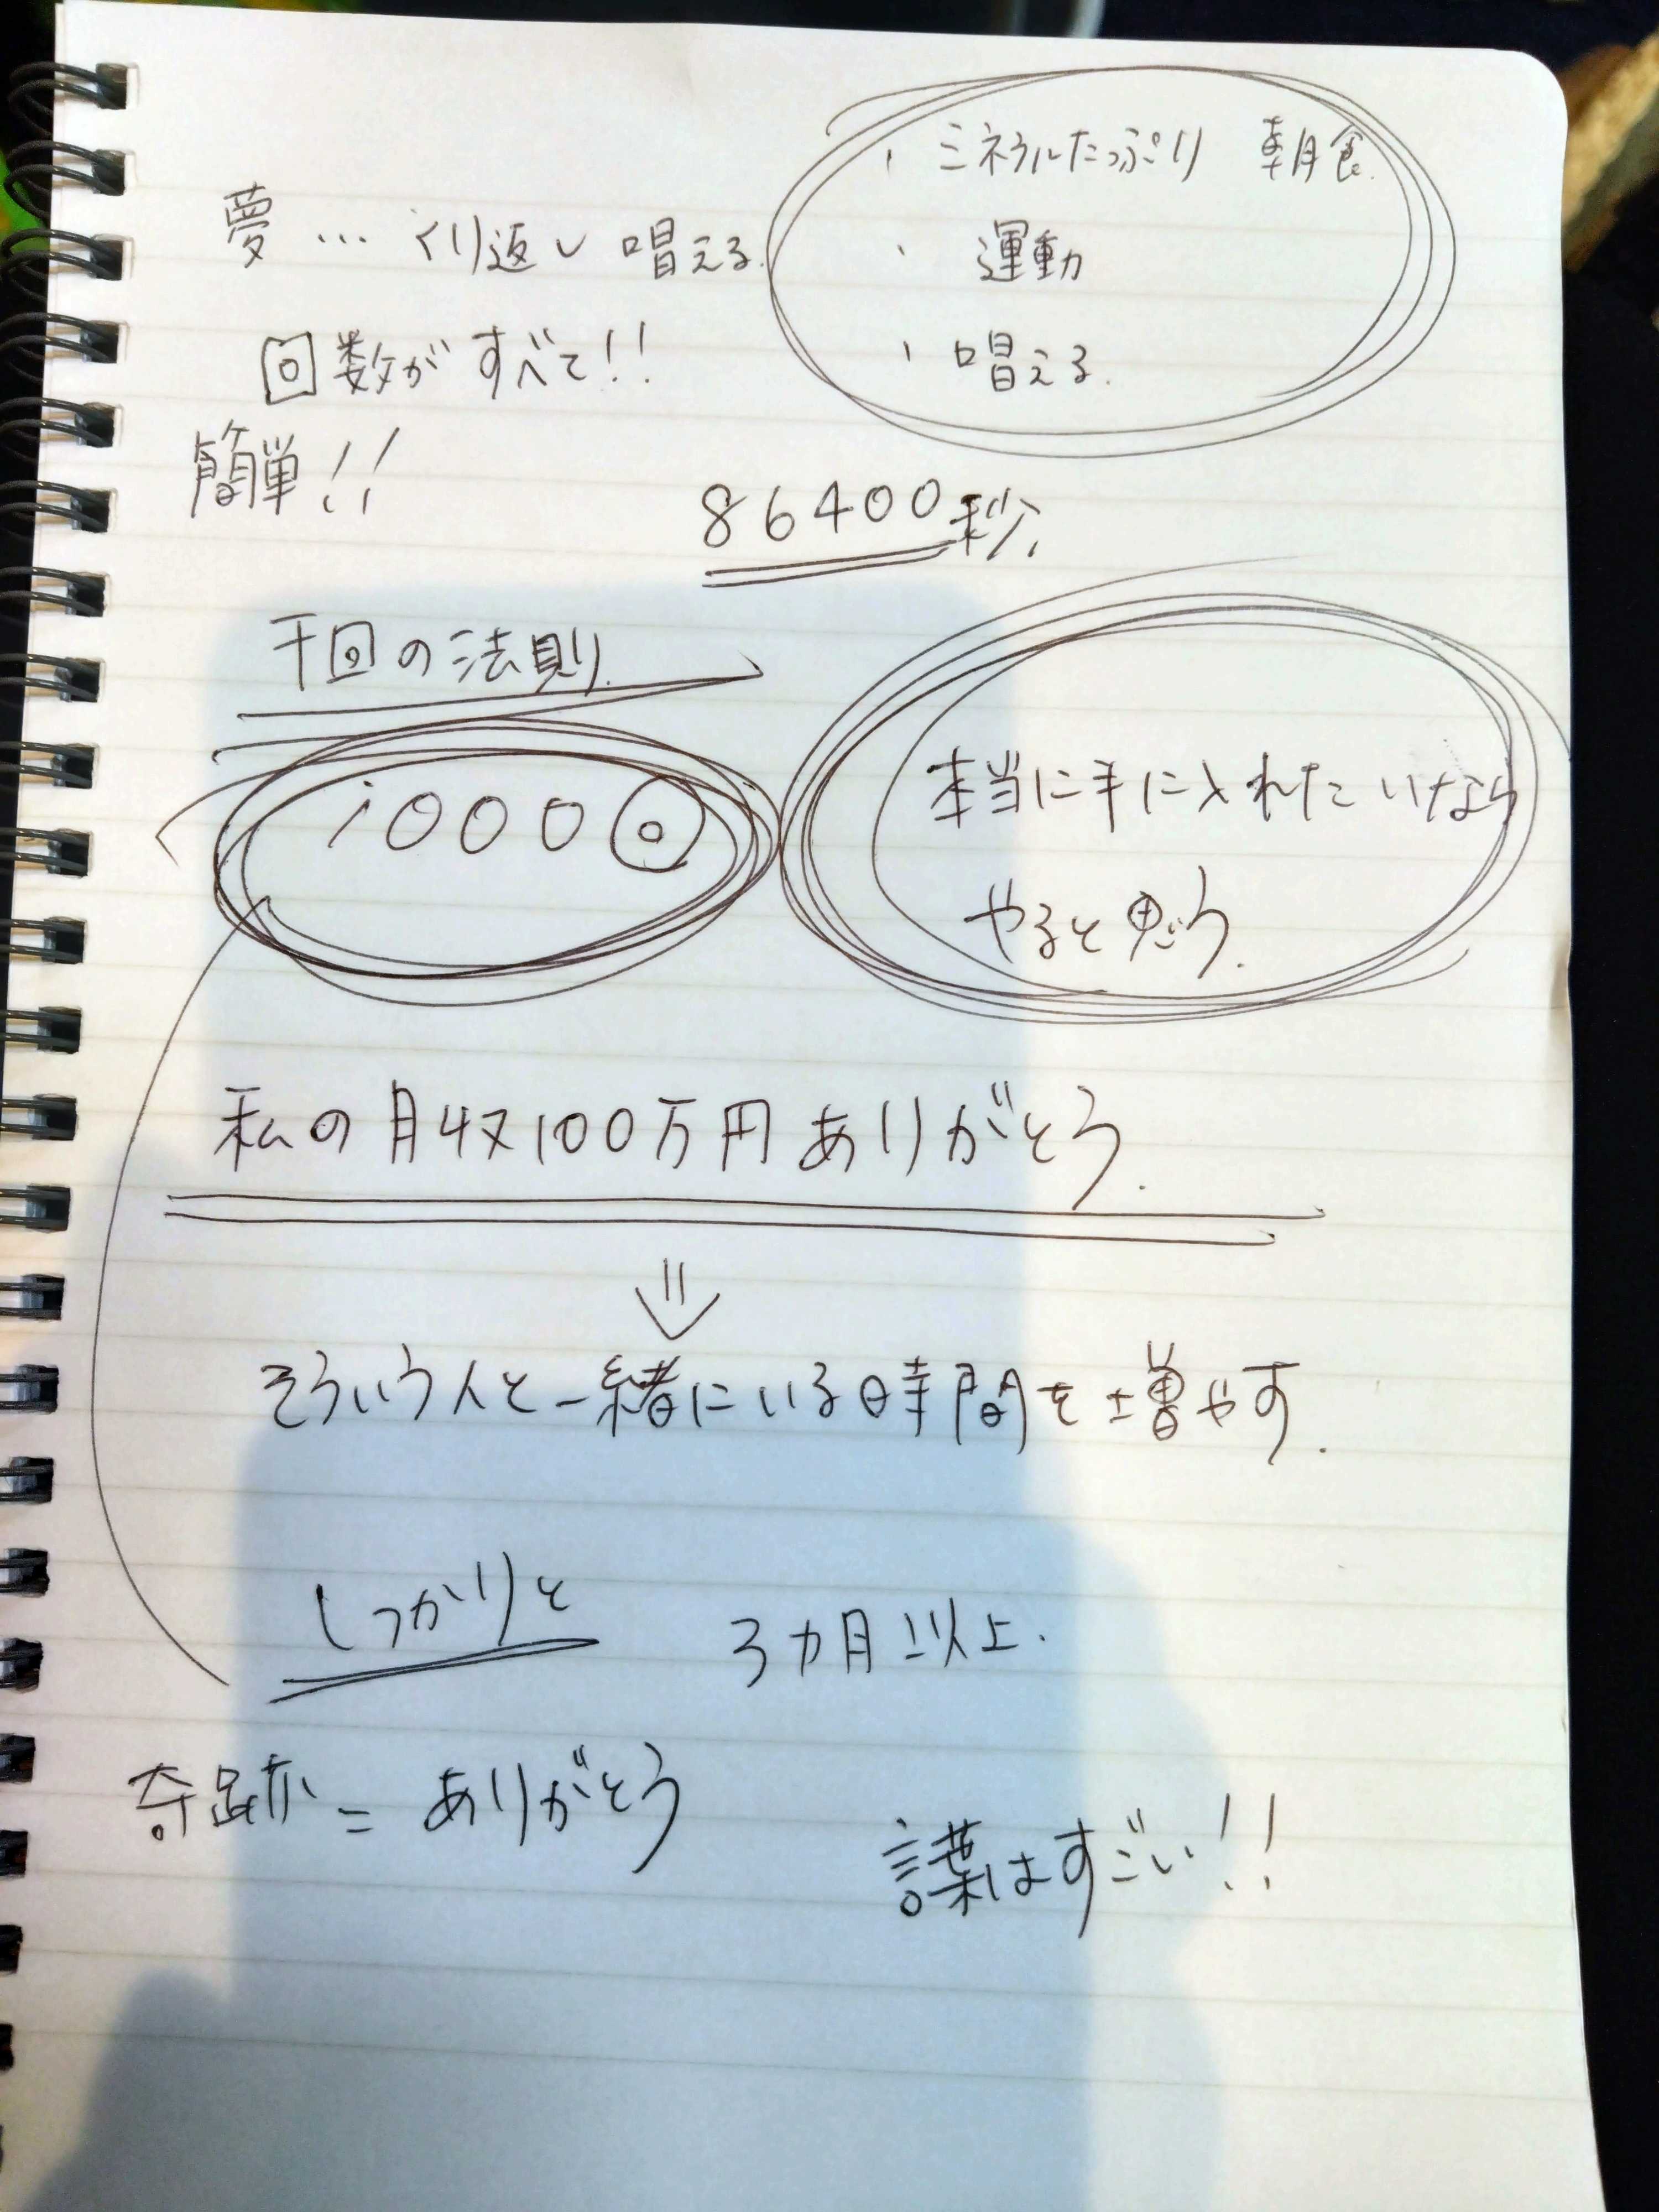 ・ミネラルたっぷり 朝食.
夢… くり返し 唱える.
・運動
回数が すべて!!
・唱える.
簡単!!
86400秒
千回の法則.
1000回
本当に手に入れたいなら
やると思う.
私の月収100万円ありがとう.
⇓
そういう人と一緒にいる時間を増やす.
しっかりと 3カ月以上.
奇跡=ありがとう
言葉はすごい!!